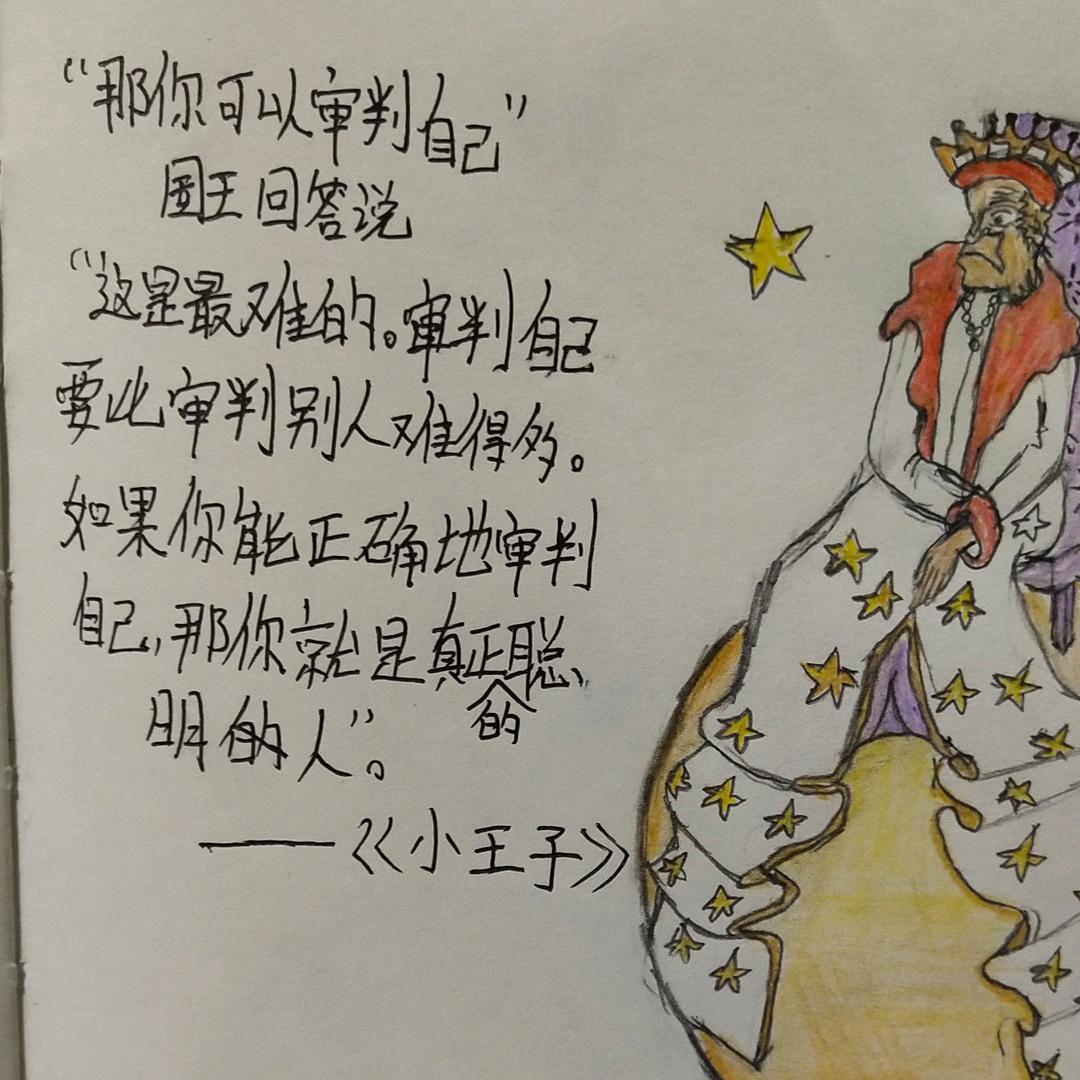 “那你可以审判自己”
国王回答说
“这是最难的。审判自己
要比审判别人难得多。
如果你能正确地审判
自己，那你就是真正的聪
明的人”。
——《小王子》